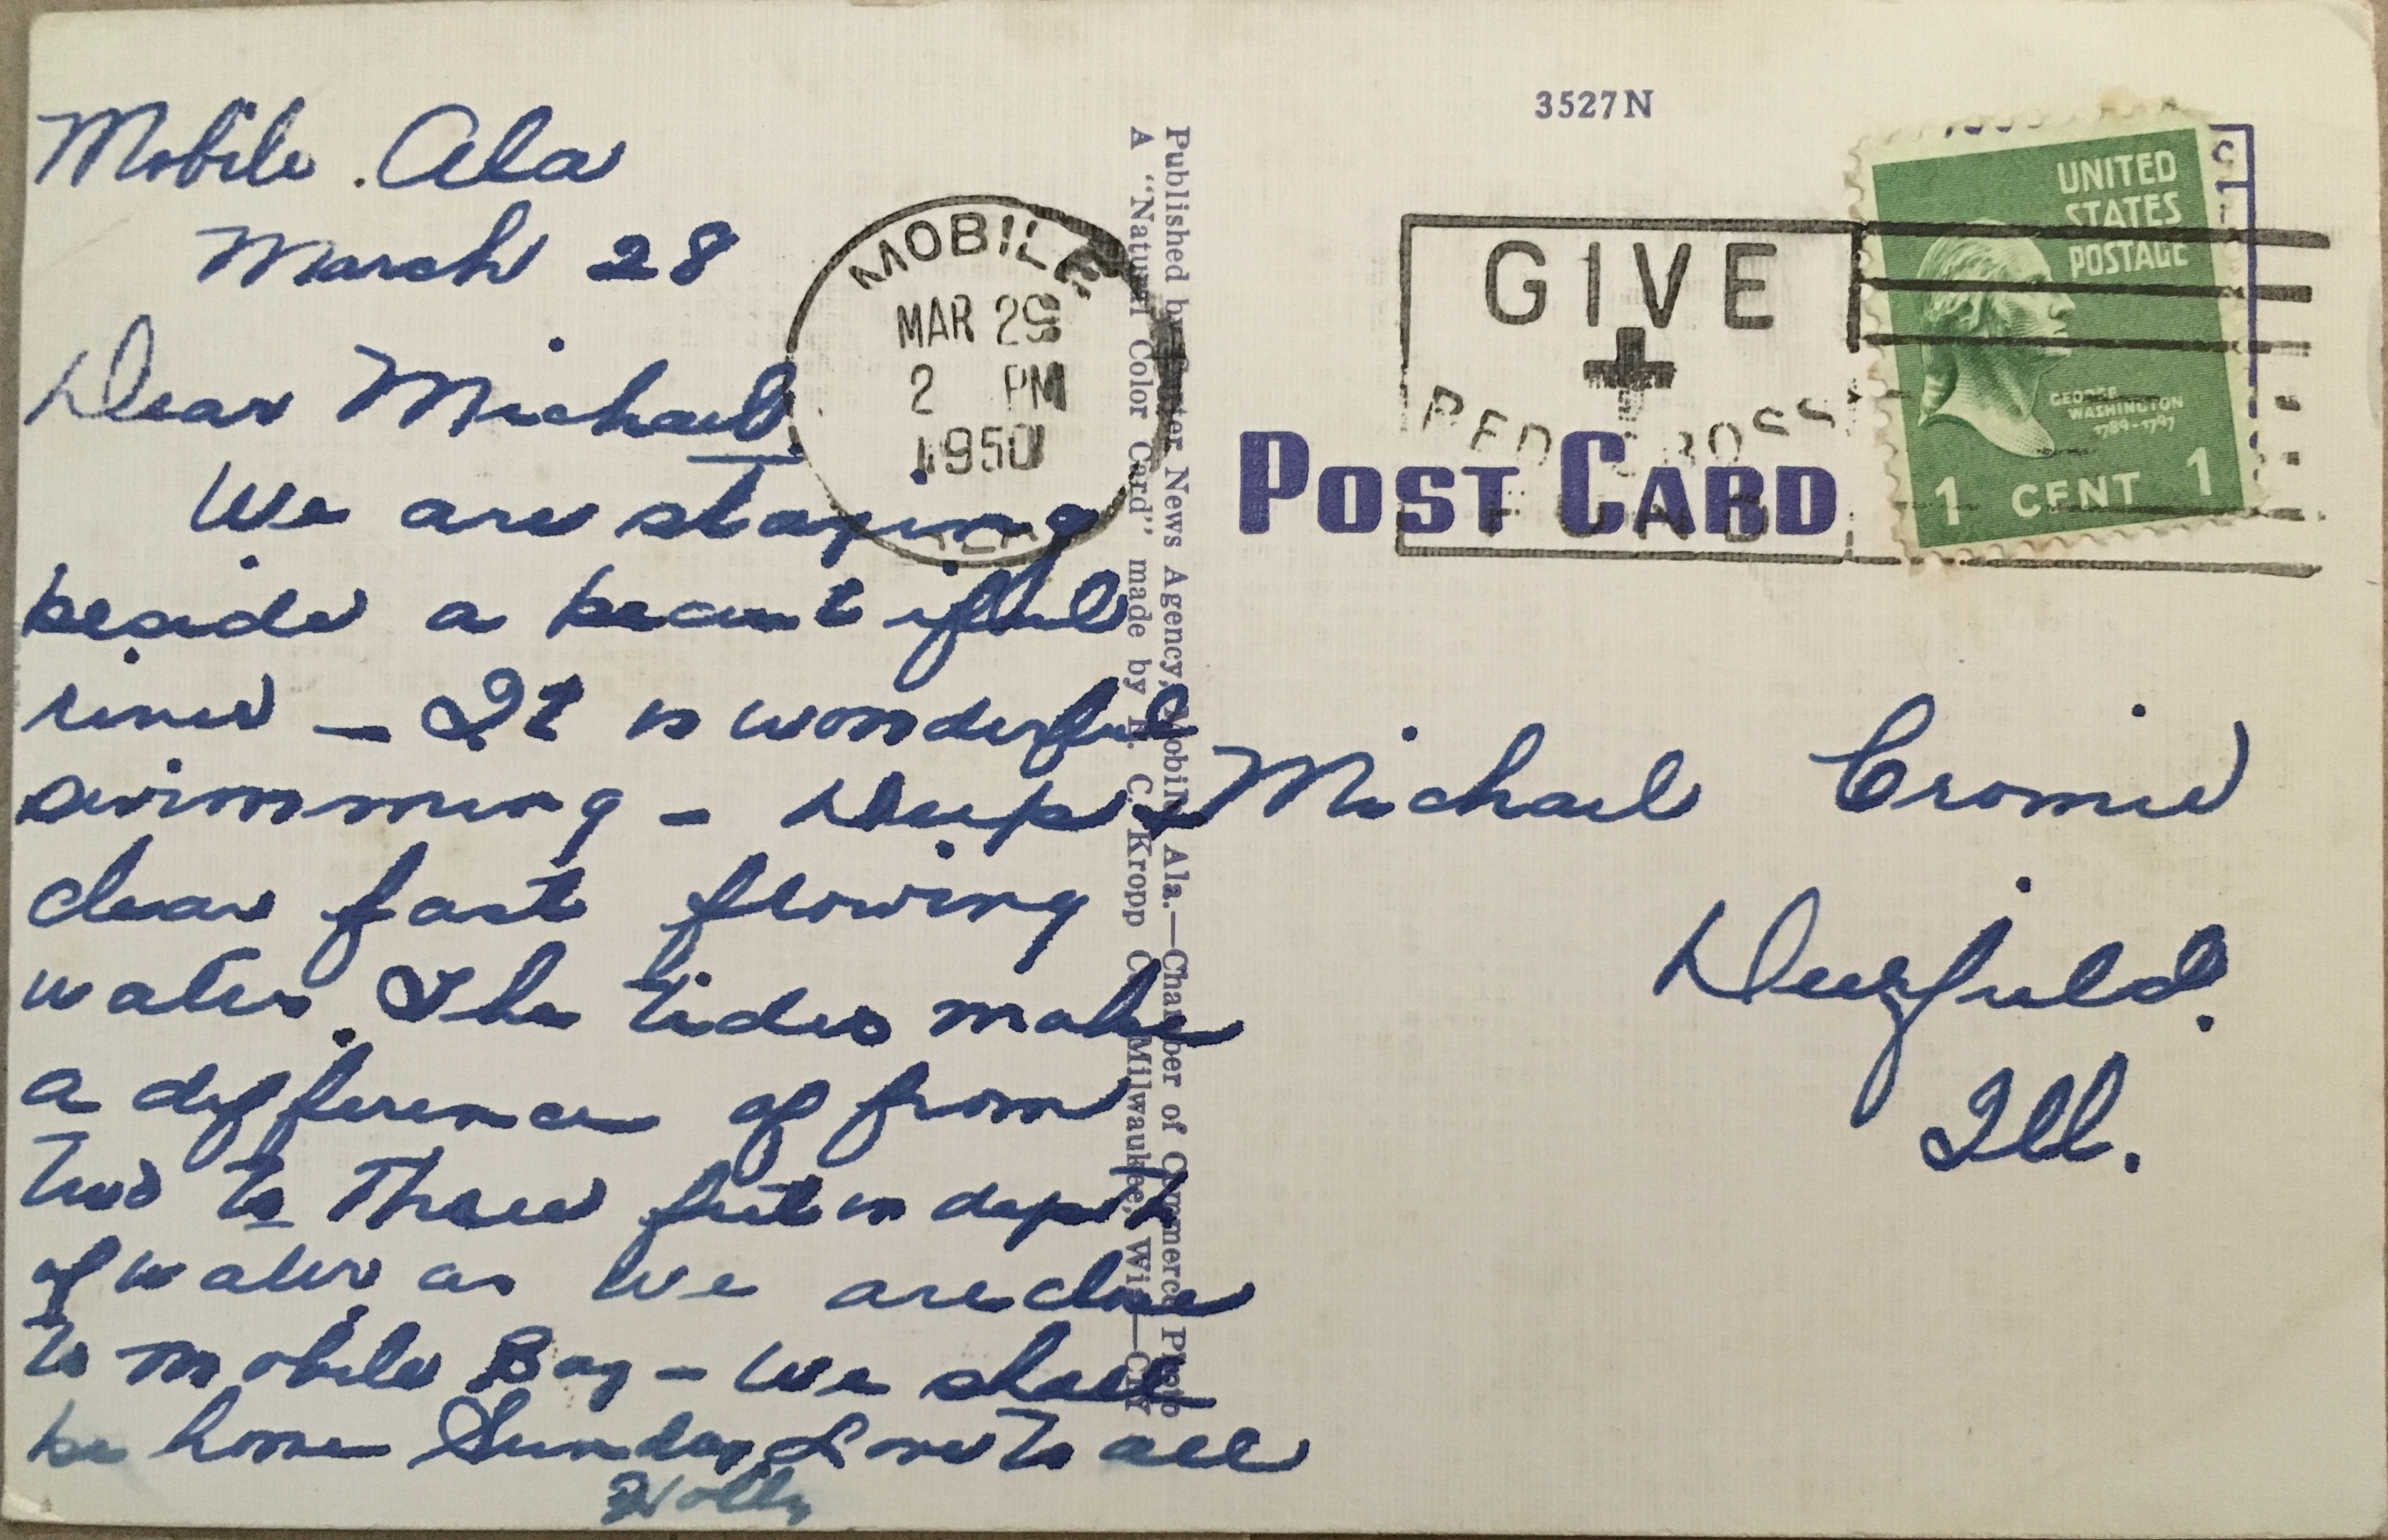 Mobile . Ala
March 28
Dear Michael
We are staying
beside a beautiful
river – It is wonderful
swimming – Deep &
clear fast flowing
water. The tides make
a difference of from
two to three feet in depth
of water as we are close
to Mobile Bay – We shall
be home Sunday Love to all
Holly
MOBILE
MAR 29
2 PM
1950
ALA
Published by Carter News Agency, Mobile, Ala.—Chamber of Commerce Photo
A "Natural Color Card" made by E. C. Kropp Co., Milwaukee, Wis.—City
3527N
GIVE
RED CROSS
FUND
POST CARD
UNITED
STATES
POSTAGE
GEORGE
WASHINGTON
1789-1797
1 CENT 1
Michael Cromie
Deerfield.
Ill.